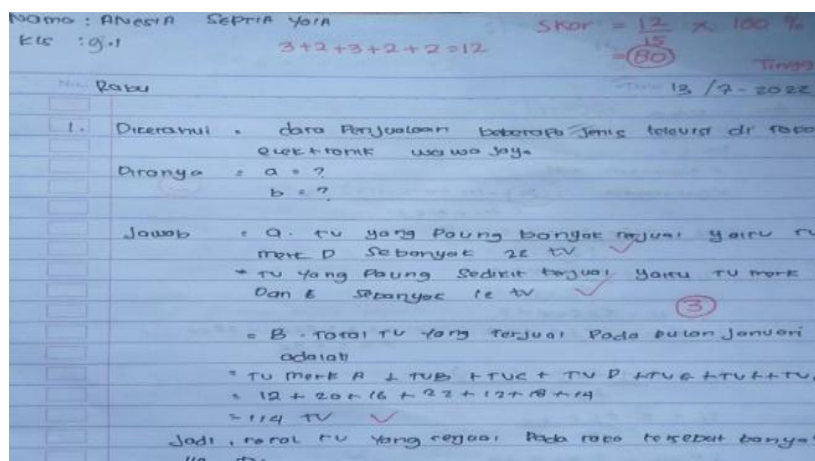 Nama : ANESIA SEPTIA YOIA
Skor = 12/15 x 100 %
Kls : 9.1
3+2+3+2+2=12
= 80
Tinggi
Rabu
13 /7 - 2022
1. Diketahui : data Penjualaan beberapa Jenis televisi di toko
elektronik wawa Jaya
Ditanya : a = ?
b = ?
Jawab : a. tv yang Paling banyak terjual yaitu TV
merk D Sebanyak 22 tv
* TV Yang Paling Sedikit terjual yaitu TV merk
Dan E Sebanyak 12 tv
3
= B. Total TV Yang Terjual Pada bulan Januari
adalah
= TV merk A + TVB + TVC + TV D + TVE + TVF + TV
= 12 + 20 + 16 + 22 + 12 + 18 + 14
= 114 TV
Jadi, total tv yang terjual Pada toko tersebut banya